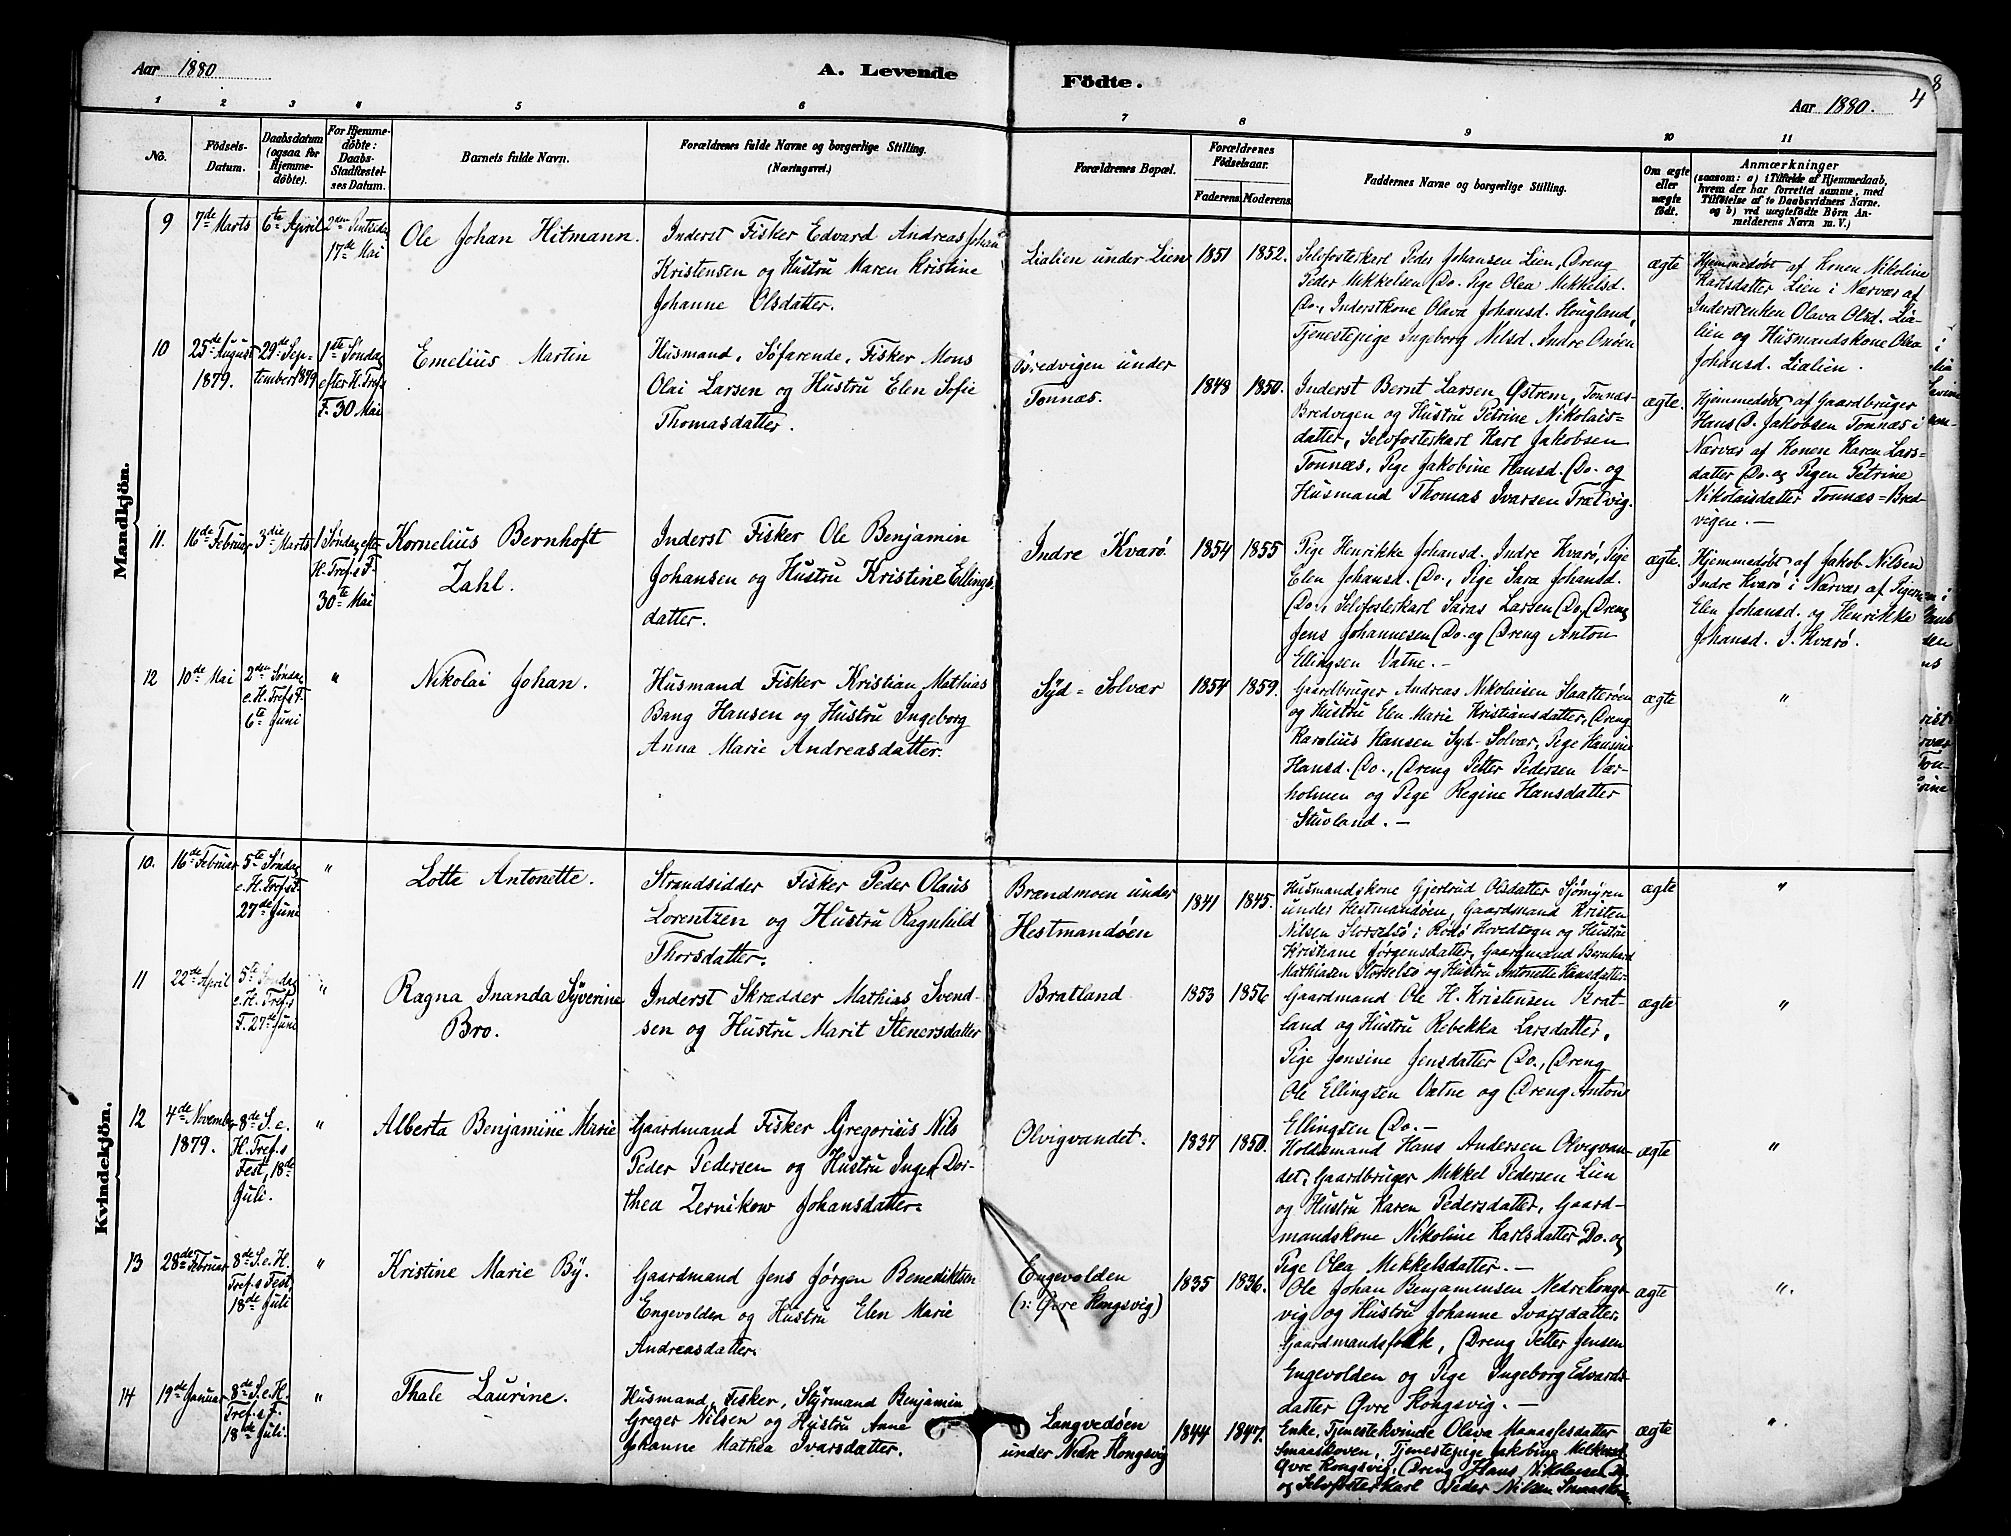 Aar 1880
A. Levende
Födte.
Aar 1880.
4
8
1
2
3
4
5
6
7
8
9
10
11
No.
Födsels-
Datum.
Daabsdatum
(ogsaa for
Hjemme-
döbte).
For Hjemme-
döbte:
Daabs-
Stadfæstel-
ses Datum.
Barnets fulde Navn.
Forældrenes fulde Navne og borgerlige Stilling.
(Næringsvei.)
Forældrenes Bopæl.
Forældrenes
Födselsaar.
Faderens.
Moderens.
Faddernes Navne og borgerlige Stilling.
Om ægte
eller
uægte
født.
Anmærkninger
(saasom: a) i Tilfælde af Hjemmedaab,
hvem der har forrettet samme, med
Tilføielse af to Daabsvidners Navne.
og b) ved uægtefödte Börn An-
melderens Navn m. V.)
Mandkjön.
9
7de Marts
6te April
2den Pintseda
17de Mai
Ole Johan Hitmann.
Inderst Fisker Edvard Andreas Johan
Kristensen og Hustru Maren Kristine
Johanne Olsdatter.
Lialien under Lien
1851
1852.
Selvfosterkarl Peder Johansen Lien, Dreng
Peder Mikkelsen Do. Pige Olea Mikkelsd.
Do., Inderstkone Olava Johansd. Hougland,
Tjenestepige Ingeborg Nilsd. Indre Onöen
ægte
Hjemmedøbt af Konen Nikoline
Karlsdatter Lien i Nærvær af
Inderstenken Olava Olsd. Lia-
lien og Husmandskone Olea
Johansd. Lialien.
10
25de August
1879.
29de Sep-
tember 1879
1ste Søndag
efter H. Tref.s
F. 30 Mai
Emelius Martin
Husmand, Søfarende, Fisker Mons
Olai Larsen og Hustru Elen Sofie
Thomasdatter.
Bredvigen under
Tonnæs.
1848
1850.
Inderst Bernt Larsen Østrem, Tonnæs-
Bredvigen og Hustru Petrine Nikolais-
datter, Selvfosterkarl Karl Jakobsen
Tonnæs, Pige Jakobine Hansd. Do. og
Husmand Thomas Ivarsen Trætvig.
ægte.
Hjemmedøbt af Gaardbruger
Hans P. Jakobsen Tonnæs i
Nærvær af Konen Karen Lars-
datter Do. og Pigen Petrine
Nikolaisdatter Tonnæs=Bred
vigen. —
11.
16de Februar
3die Marts
1 Søndag efter
H. Tref.s F.
30te Mai
Kornelius Bernhoft
Zahl.
Inderst Fisker Ole Benjamin
Johansen og Hustru Kristine Ellings
datter.
Indre Kvarø.
1854
1855
Pige Henrikke Johansd. Indre Kvarø, Pige
Elen Johansd. Do., Pige Sara Johansd.
Do., Selvfosterkarl Saras Larsen Do, Dreng
Jens Johannesen Do. og Dreng Anton
Ellingsen Vatne. —
ægte.
Hjemmedøbt af Jakob Nilsen
Indre Kvarø i Nærvær af Pigerne
Elen Johansd. og Henrikke
Johansd. I. Kvarø.
12
10de Mai
2den Søndag
e. H. Tref.s F.
6te Juni
"
Nikolai Johan.
Husmand Fisker Kristian Mathias
Bang Hansen og Hustru Ingeborg
Anna Marie Andreasdatter.
Syd=Solvær
1854
1859.
Gaardbruger Andreas Nikolaisen Slaatterøen
og Hustru Elen Marie Kristiansdatter, Dreng
Karelius Hansen Syd-Solvær, Pige Hansine
Hansd. Do., Dreng Petter Pedersen Vær-
holmen og Pige Regine Hansdatter
Stuvland. —
ægte
"
Kvindekjön.
10.
16de Februar
5te Søndag
e. H. Tref.s F.
27de Juni
"
Lotte Antonette.
Strandsidder Fisker Peder Olaus
Lorentzen og Hustru Ragnhild
Thorsdatter.
Brændmoen under
Hestmandöen
1841
1845.
Husmandskone Gjertrud Olsdatter Sjömyren
under Hestmandöen, Gaardmand Kristen
Nilsen Storselsö i Rödö Hovedsogn og Hustru
Kristiane Jørgensdatter, Gaardmand Bernhard
Mathiasen Storselsö og Hustru Antonette Hansdatter
ægte
"
11
22de April
5te Søndag
e. H. Tref.s
F. 27de Juni
"
Ragna Inanda Syverine
Bro.
Inderst Skrædder Mathias Svend-
sen og Hustru Marit Stenersdatter
Bratland
1853
1856
Gaardmand Ole H. Kristensen Brat-
land og Hustru Rebekka Larsdatter,
Pige Jensine Jensdatter Do., Dreng
Ole Ellingsen Vatne og Dreng Antons
Ellingsen Do. —
ægte
"
12
4de November
1879.
8de S. e.
H. Tref.s
Fest, 18de
Juli.
"
Alberta Benjamine Marie
Gaardmand Fisker Gregorius Nils
Peder Pedersen og Hustru Inger Dor-
thea Zernikow Johansdatter.
Olvigvandet.
1837
1850.
Holdsmand Hans Andersen Olvigvan-
det, Gaardbruger Mikkel Pedersen Lien
og Hustru Karen Pedersdatter, Gaard-
mandskone Nikoline Karlsdatter Do. og
Pige Olea Mikkelsdatter. —
ægte
"
13
28de Februar
8de S. e. H.
Tref.s Fest
18de Juli
"
Kristine Marie By.
Gaardmand Jens Jørgen Benediktsen
Engevolden og Hustru Elen Marie
Andreasdatter.
Engevolden
(ɔ: Øvre Kongsvig)
1835
1836.
Ole Johan Benjaminsen Nedre Kongs-
vig og Hustru Johanne Ivarsdatter,
Gaardmandsfolk, Dreng Petter Jensen
Engevolden og Pige Ingeborg Edvards-
datter Øvre Kongsvig. —
ægte
".
14
19de Januar
8de S. e. H.
Tref.s F.
18de Juli.
"
Thale Laurine.
Husmand, Fisker, Styrmand Benjamin
Greger Nilsen og Hustru Anne
Johanne Mathea Ivarsdatter.
Langvedöen
under Nedre Kongsvig
1844
1847.
Enke, Tjenestekvinde Oliva Manassesdatter
Smaaskoven, Tjenestepige Jakobine
Øvre Kongsvig, Dreng Hans Nikolaisen Do.
og Selvfosterkarl Peder Nilsen
ægte
"